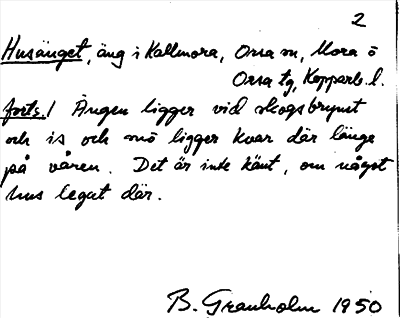 2
Husänget, äng i Kallmora, Orsa sn, Mora o
Orsa tg, Kopparb. l.
forts./ Ängen ligger vid skogsbrynet
och is och snö ligger kvar där länge
på våren. Det är inte känt, om något
hus legat där.
B. Granholm 1950